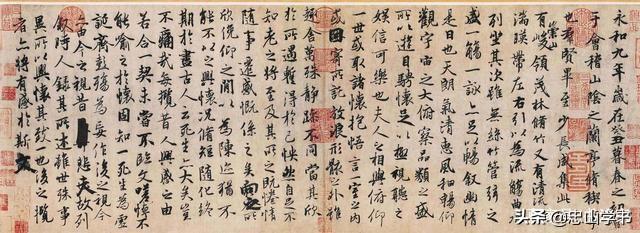 永和九年歲在癸丑暮春之初會
于會稽山陰之蘭亭脩稧事
也群賢畢至少長咸集此地
崇山
有峻領茂林脩竹又有清流激
湍暎帶左右引以為流觴曲水
列坐其次雖無絲竹管弦之
盛一觴一詠亦足以暢敘幽情
是日也天朗氣清惠風和暢仰
觀宇宙之大俯察品類之盛
所以遊目騁懷足以極視聽之
娛信可樂也夫人之相與俯仰
一世或取諸懷抱悟言一室之內
或因寄所託放浪形骸之外雖
趣舍萬殊靜躁不同當其欣
於所遇暫得於己怏然自足不
知老之將至及其所之既惓情
隨事遷感慨係之矣向之所
欣俛仰之閒以為陳迹猶不
能不以之興懷況脩短隨化終
期於盡古人云死生亦大矣豈
不痛哉每攬昔人興感之由
若合一契未嘗不臨文嗟悼不
能喻之於懷固知一死生為虛
誕齊彭殤為妄作後之視今
亦由今之視昔悲夫故列
敘時人錄其所述雖世殊事
異所以興懷其致一也後之攬
者亦將有感於斯文
头条 @忠山学书